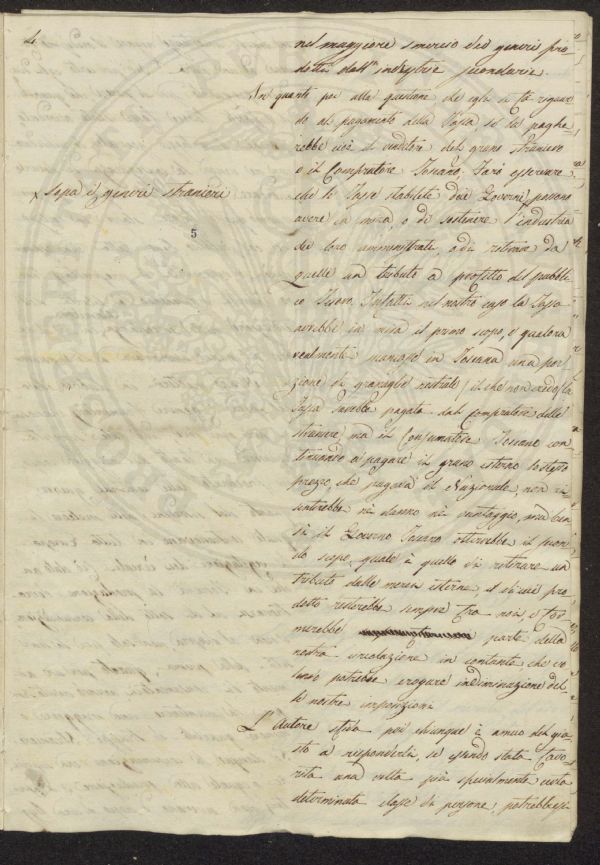 nel maggiore smercio dei generi pro
dotti dall'industrie secondarie.
In quanto poi alla questione che egli si fa riguar
do al pagamento della Tassa se la paghe
rebbe cioè il venditore del grano straniero
o il Compratore Toscano, farò osservare
che le Tasse stabilite dai Governi possono
x sopra i generi stranieri
avere in mira o di sostenere l'industria
5
dei loro amministrati, o di ritirare da
quelle un tributo a profitto del pubbli
co Tesoro. Infatti nel nostro caso la Tassa
avrebbe in mira il primo scopo, e qualora
realmente mancasse in Toscana una por
zione di granaglie nostrali (il che non credo) la
Tassa sarebbe pagata dal compratore delle
straniere, ma il Consumatore Toscano con
tinuando a pagare il grano esterno lo stesso
prezzo, che pagava il Nazionale, non ri
sentirebbe nè danno nè vantaggio, ma ben
sì il Governo Toscano otterrebbe il secon
do scopo, quale è quello di ritirare un
tributo dalle merci esterne, il di cui pro
dotto resterebbe sempre tra noi, e for
merebbe parte della
nostra circolazione in contante che vo
lendo potrebbe erogare in diminuzione del
le nostre imposizioni
L'Autore sfida poi chiunque è amico del giu
sto a rispondergli, se essendo stata favo
rita una volta già specialmente certa
determinata classe di persone, potrebbesi